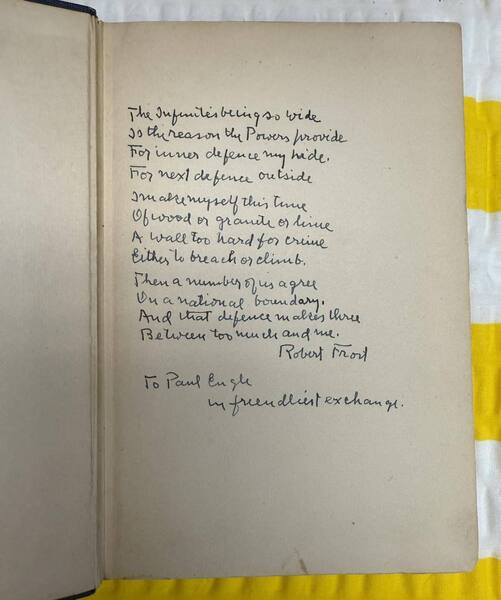 The Infinite's being so wide
Is the reason the Powers provide
For inner defence my hide.
For next defence outside
I make myself this time
Of wood or granite or lime
A wall too hard for crime
Either to breach or climb.
Then a number of us agree
On a national boundary.
And that defence makes three
Between too much and me.
Robert Frost
To Paul Engle
in friendliest exchange.